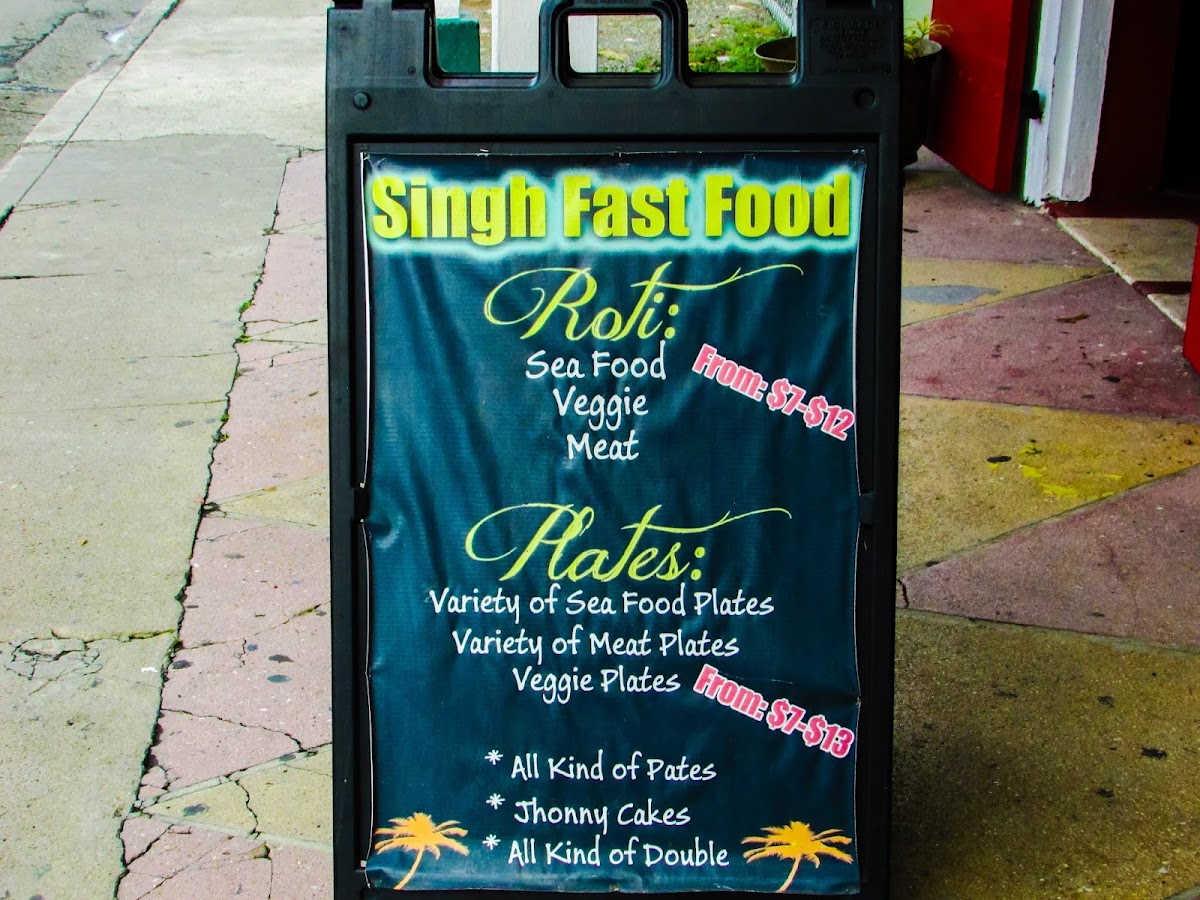 Singh Fast Food
Roti:
Sea Food
Veggie
Meat
From: $7-$12
Plates:
Variety of Sea Food Plates
Variety of Meat Plates
Veggie Plates
From: $7-$13
* All Kind of Pates
* Jhonny Cakes
* All Kind of Double